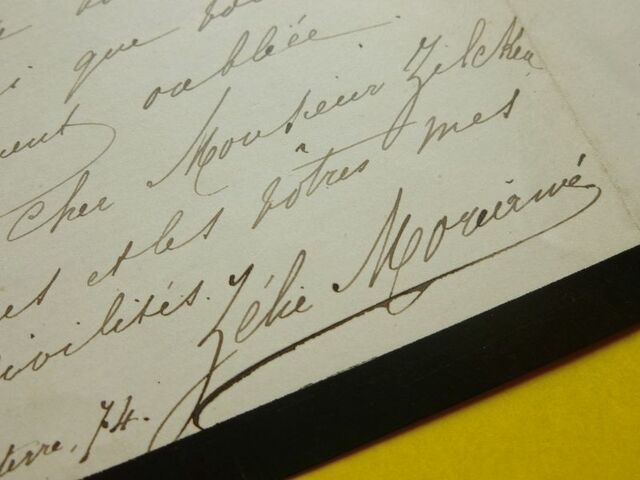 que
oubliée.
cher Monsieur Zilcken
et les vôtres mes
civilités. Zélie Moriamé
74.